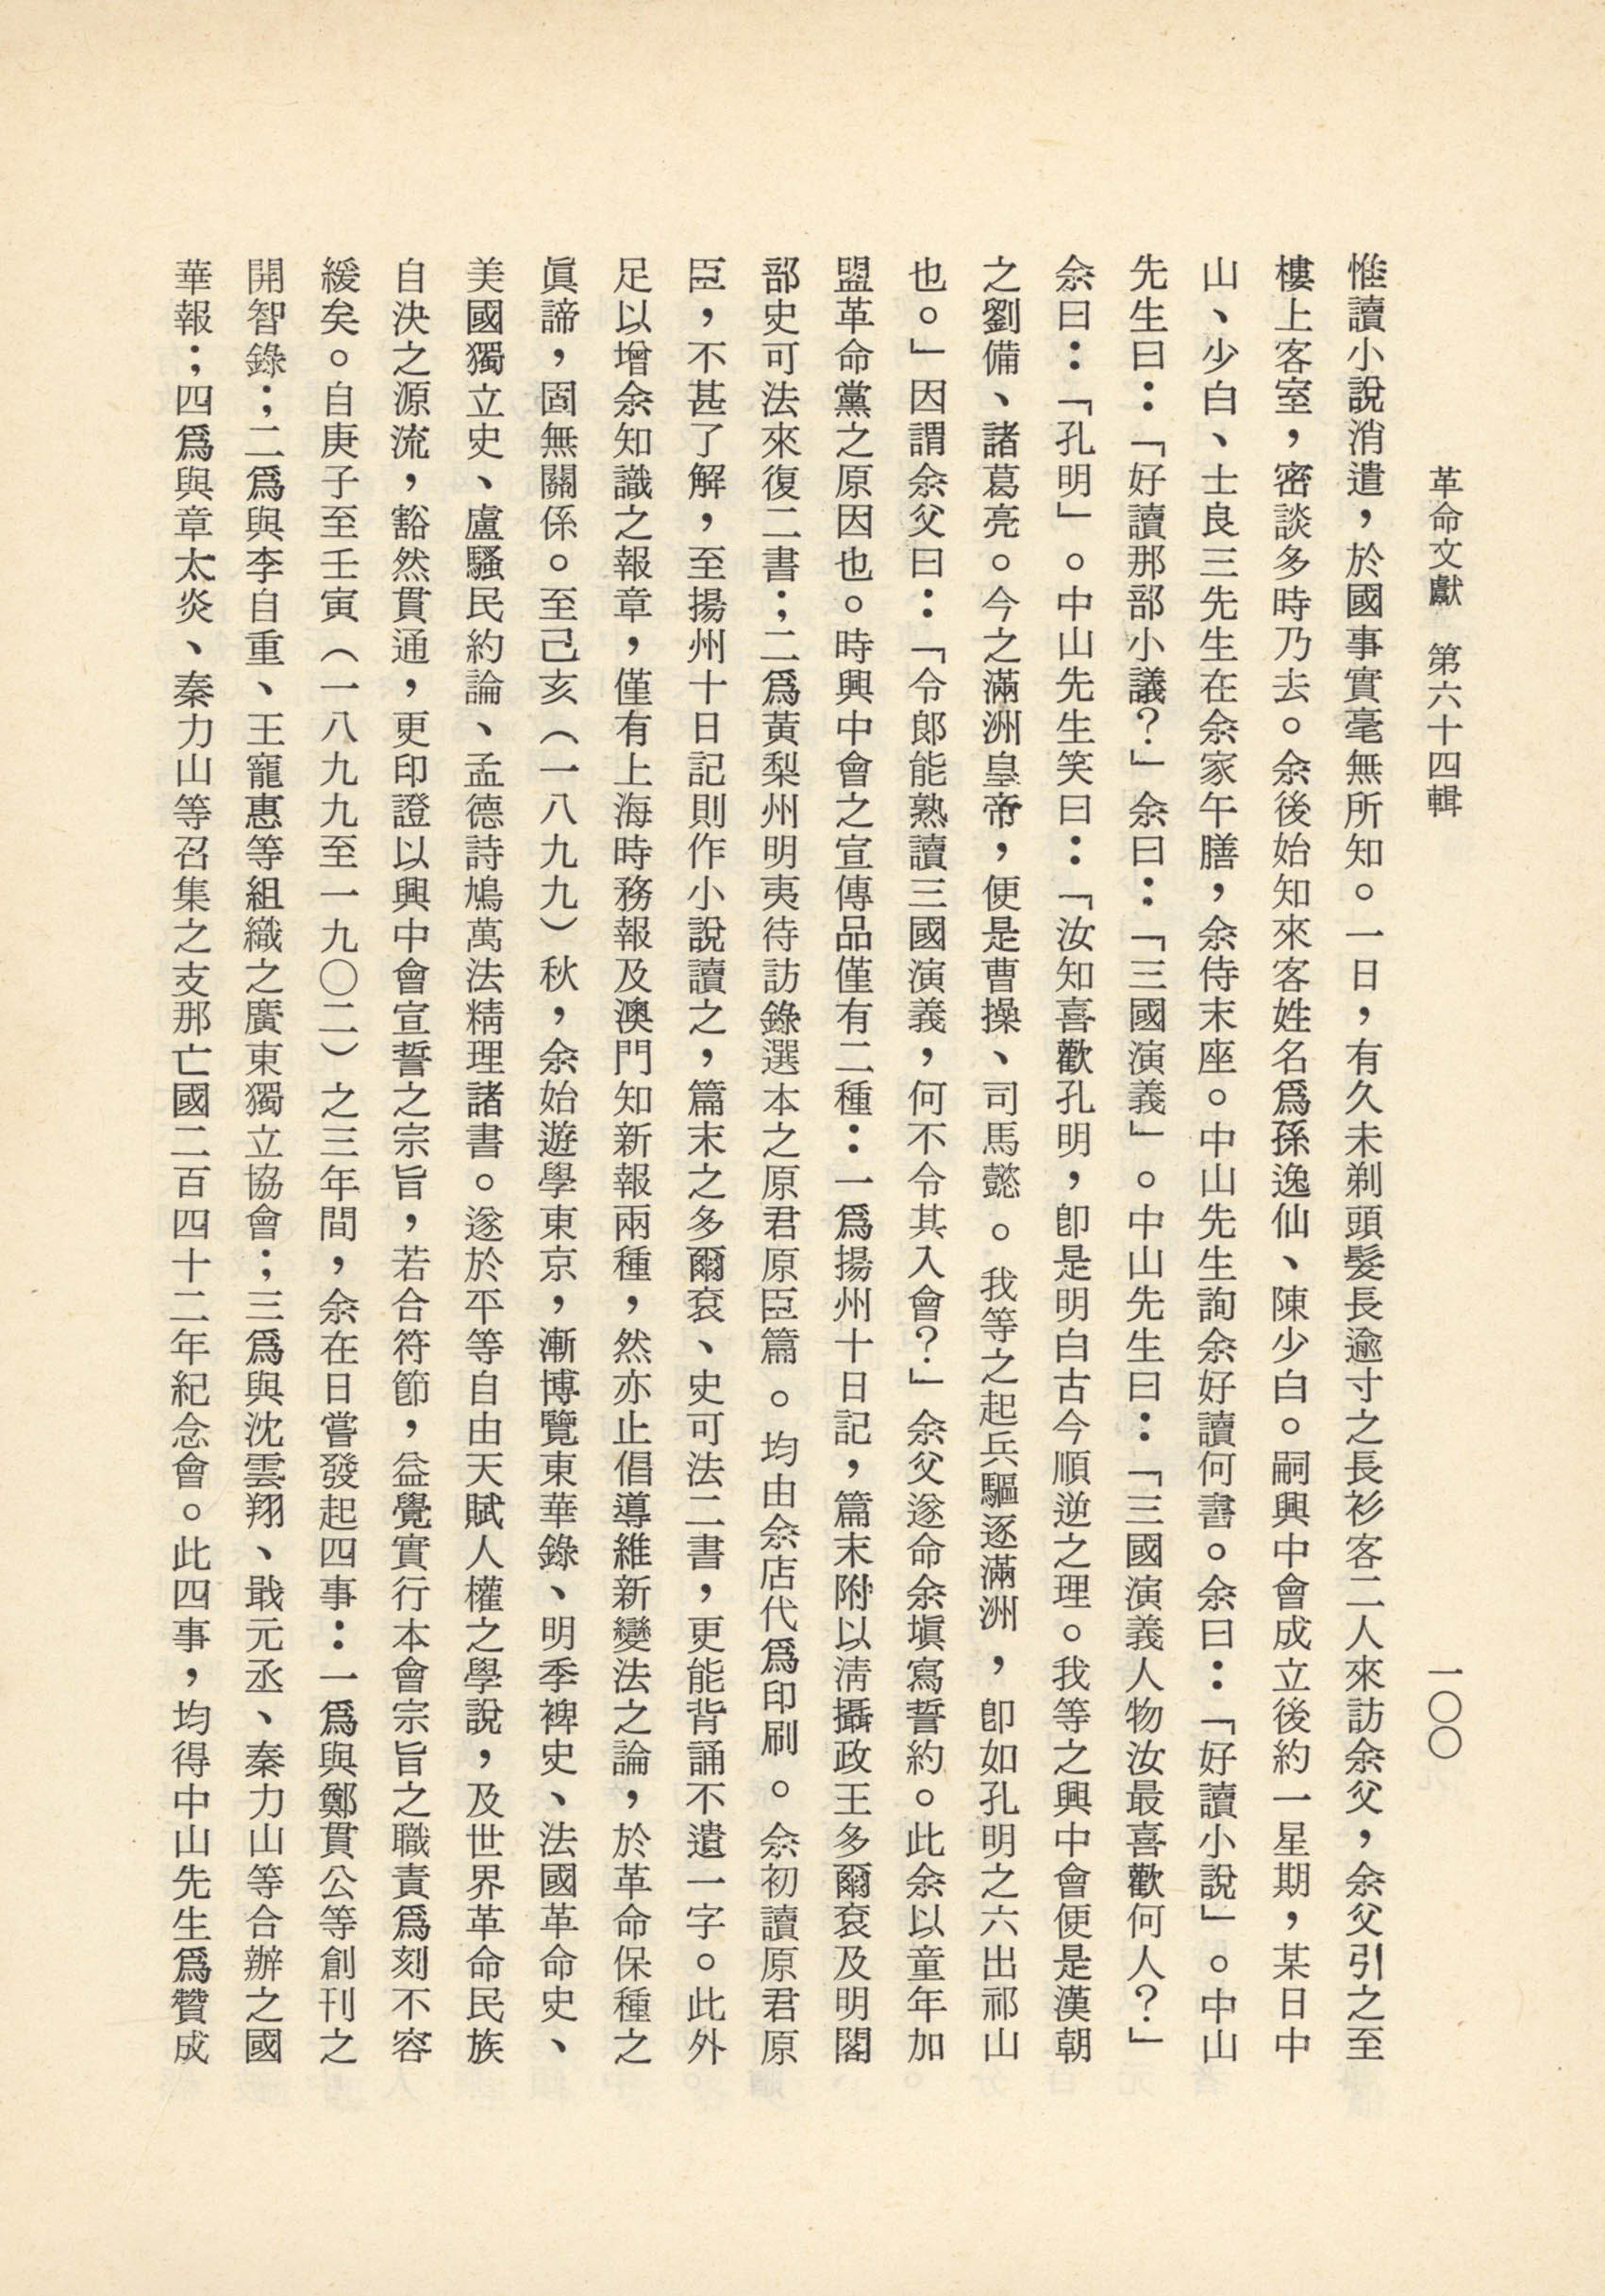 革命文獻　第六十四輯　一〇〇
惟讀小說消遣，於國事實毫無所知。一日，有久未剃頭髮長逾寸之長衫客二人來訪余父，余父引之至
樓上客室，密談多時乃去。余後始知來客姓名爲孫逸仙、陳少白。嗣興中會成立後約一星期，某日中
山、少白、士良三先生在余家午膳，余侍末座。中山先生詢余好讀何書。余曰：「好讀小說」。中山
先生曰：「好讀那部小議？」余曰：「三國演義」。中山先生曰：「三國演義人物汝最喜歡何人？」
余曰：「孔明」。中山先生笑曰：「汝知喜歡孔明，卽是明白古今順逆之理。我等之興中會便是漢朝
之劉備、諸葛亮。今之滿洲皇帝，便是曹操、司馬懿。我等之起兵驅逐滿洲，卽如孔明之六出祁山
也。」因謂余父曰：「令郎能熟讀三國演義，何不令其入會？」余父遂命余塡寫誓約。此余以童年加
盟革命黨之原因也。時興中會之宣傳品僅有二種：一爲揚州十日記，篇末附以淸攝政王多爾袞及明閣
部史可法來復二書；二爲黃梨州明夷待訪錄選本之原君原臣篇。均由余店代爲印刷。余初讀原君原
臣，不甚了解，至揚州十日記則作小說讀之，篇末之多爾袞、史可法二書，更能背誦不遺一字。此外
足以增余知識之報章，僅有上海時務報及澳門知新報兩種，然亦止倡導維新變法之論，於革命保種之
眞諦，固無關係。至己亥（一八九九）秋，余始遊學東京，漸博覽東華錄、明季裨史、法國革命史、
美國獨立史、盧騷民約論、孟德詩鳩萬法精理諸書。遂於平等自由天賦人權之學說，及世界革命民族
自決之源流，豁然貫通，更印證以興中會宣誓之宗旨，若合符節，益覺實行本會宗旨之職責爲刻不容
緩矣。自庚子至壬寅（一八九九至一九〇二）之三年間，余在日嘗發起四事：一爲與鄭貫公等創刊之
開智錄；二爲與李自重、王寵惠等組織之廣東獨立協會；三爲與沈雲翔、戢元丞、秦力山等合辦之國
華報；四爲與章太炎、秦力山等召集之支那亡國二百四十二年紀念會。此四事，均得中山先生爲贊成